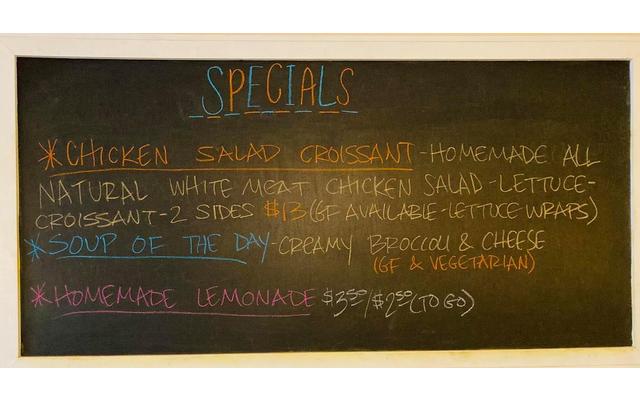 SPECIALS
*CHICKEN SALAD CROISSANT-HOMEMADE ALL
NATURAL WHITE MEAT CHICKEN SALAD-LETTUCE-
CROISSANT-2 SIDES $13 (GF AVAILABLE-LETTUCE WRAPS)
*SOUP OF THE DAY-CREAMY BROCCOLI & CHEESE
(GF & VEGETARIAN)
*HOMEMADE LEMONADE $3.50/$2.50 (TO GO)